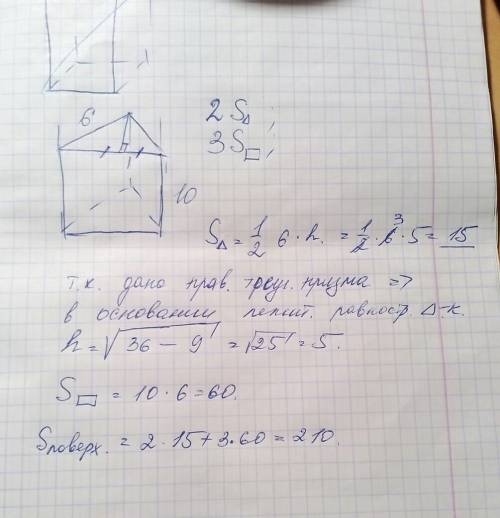 6
2 S△;
3 S▭;
10
S△ = 1/2 6 · h. = 1/2 · 6 3 · 5 = 15
т.к. дано прав. треуг. призма =>
в основании лежит. равност. △-к.
h = √(36 − 9) = √25 = 5.
S▭ = 10 · 6 = 60.
Sповерх. = 2 · 15 + 3 · 60 = 210.